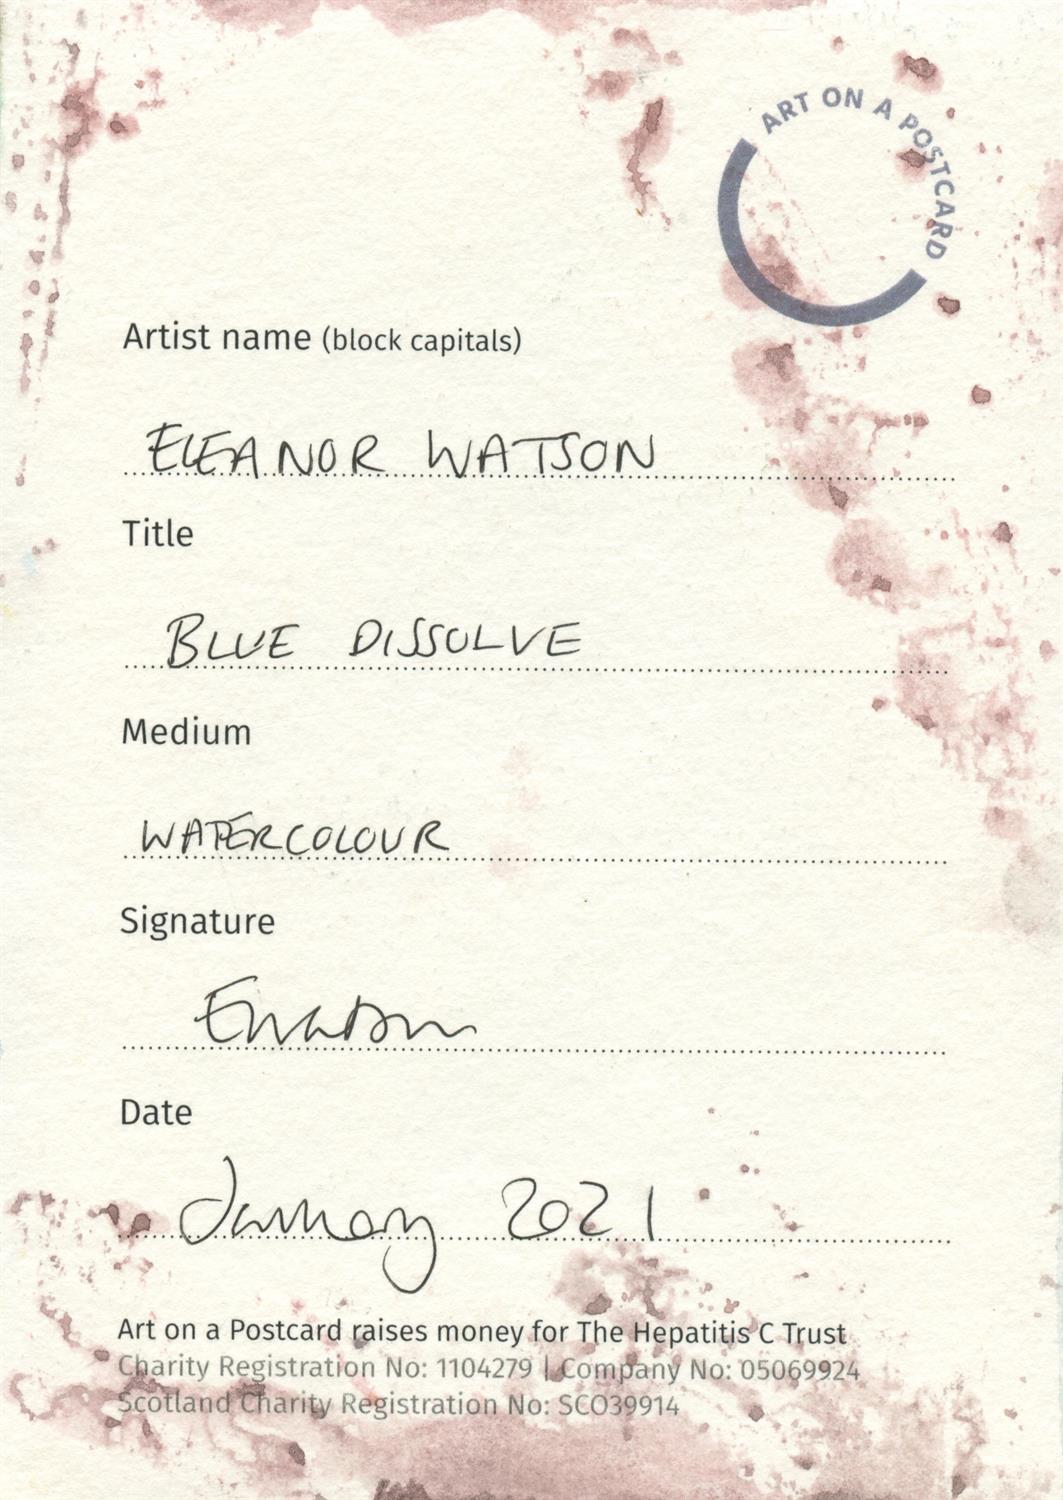 ART ON A POSTCARD
Artist name (block capitals)
ELEANOR WATSON
Title
BLUE DISSOLVE
Medium
WATERCOLOUR
Signature
EWatson
Date
January 2021
Art on a Postcard raises money for The Hepatitis C Trust
Charity Registration No: 1104279 | Company No: 05069924
Scotland Charity Registration No: SCO39914